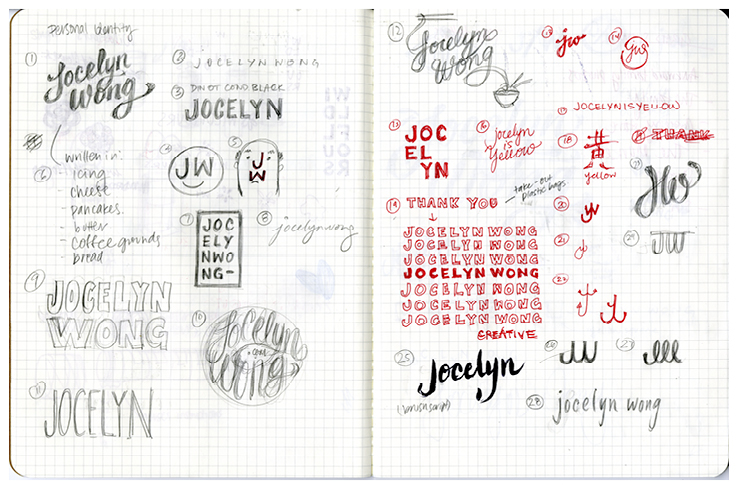 personal identity
1
Jocelyn
Wong
2
JOCELYN WONG
3
DIN OT COND BLACK
JOCELYN
written in:
6
- icing
- cheese
- pancakes
- butter
- coffee grounds
- bread
4
JW
5
JW
7
JOC
ELY
NWO
NG-
8
jocelynwong
9
JOCELYN
WONG
10
Jocelyn
.com
Wong
11
JOCELYN
12
Jocelyn
Wong
13
jw
14
JOC
EL
YN
16
jocelyn
is
yellow
17
JOCELYNISYELLOW
18
黄
yellow
THANK
19
THANK YOU
take-out
plastic bags
JOCELYN WONG
JOCELYN WONG
JOCELYN WONG
JOCELYN WONG
JOCELYN WONG
JOCELYN WONG
JOCELYN WONG
CREATIVE
20
JW
21
22
23
JW
24
JW
25
Jocelyn
(brush script)
26
JW
27
28
jocelyn wong